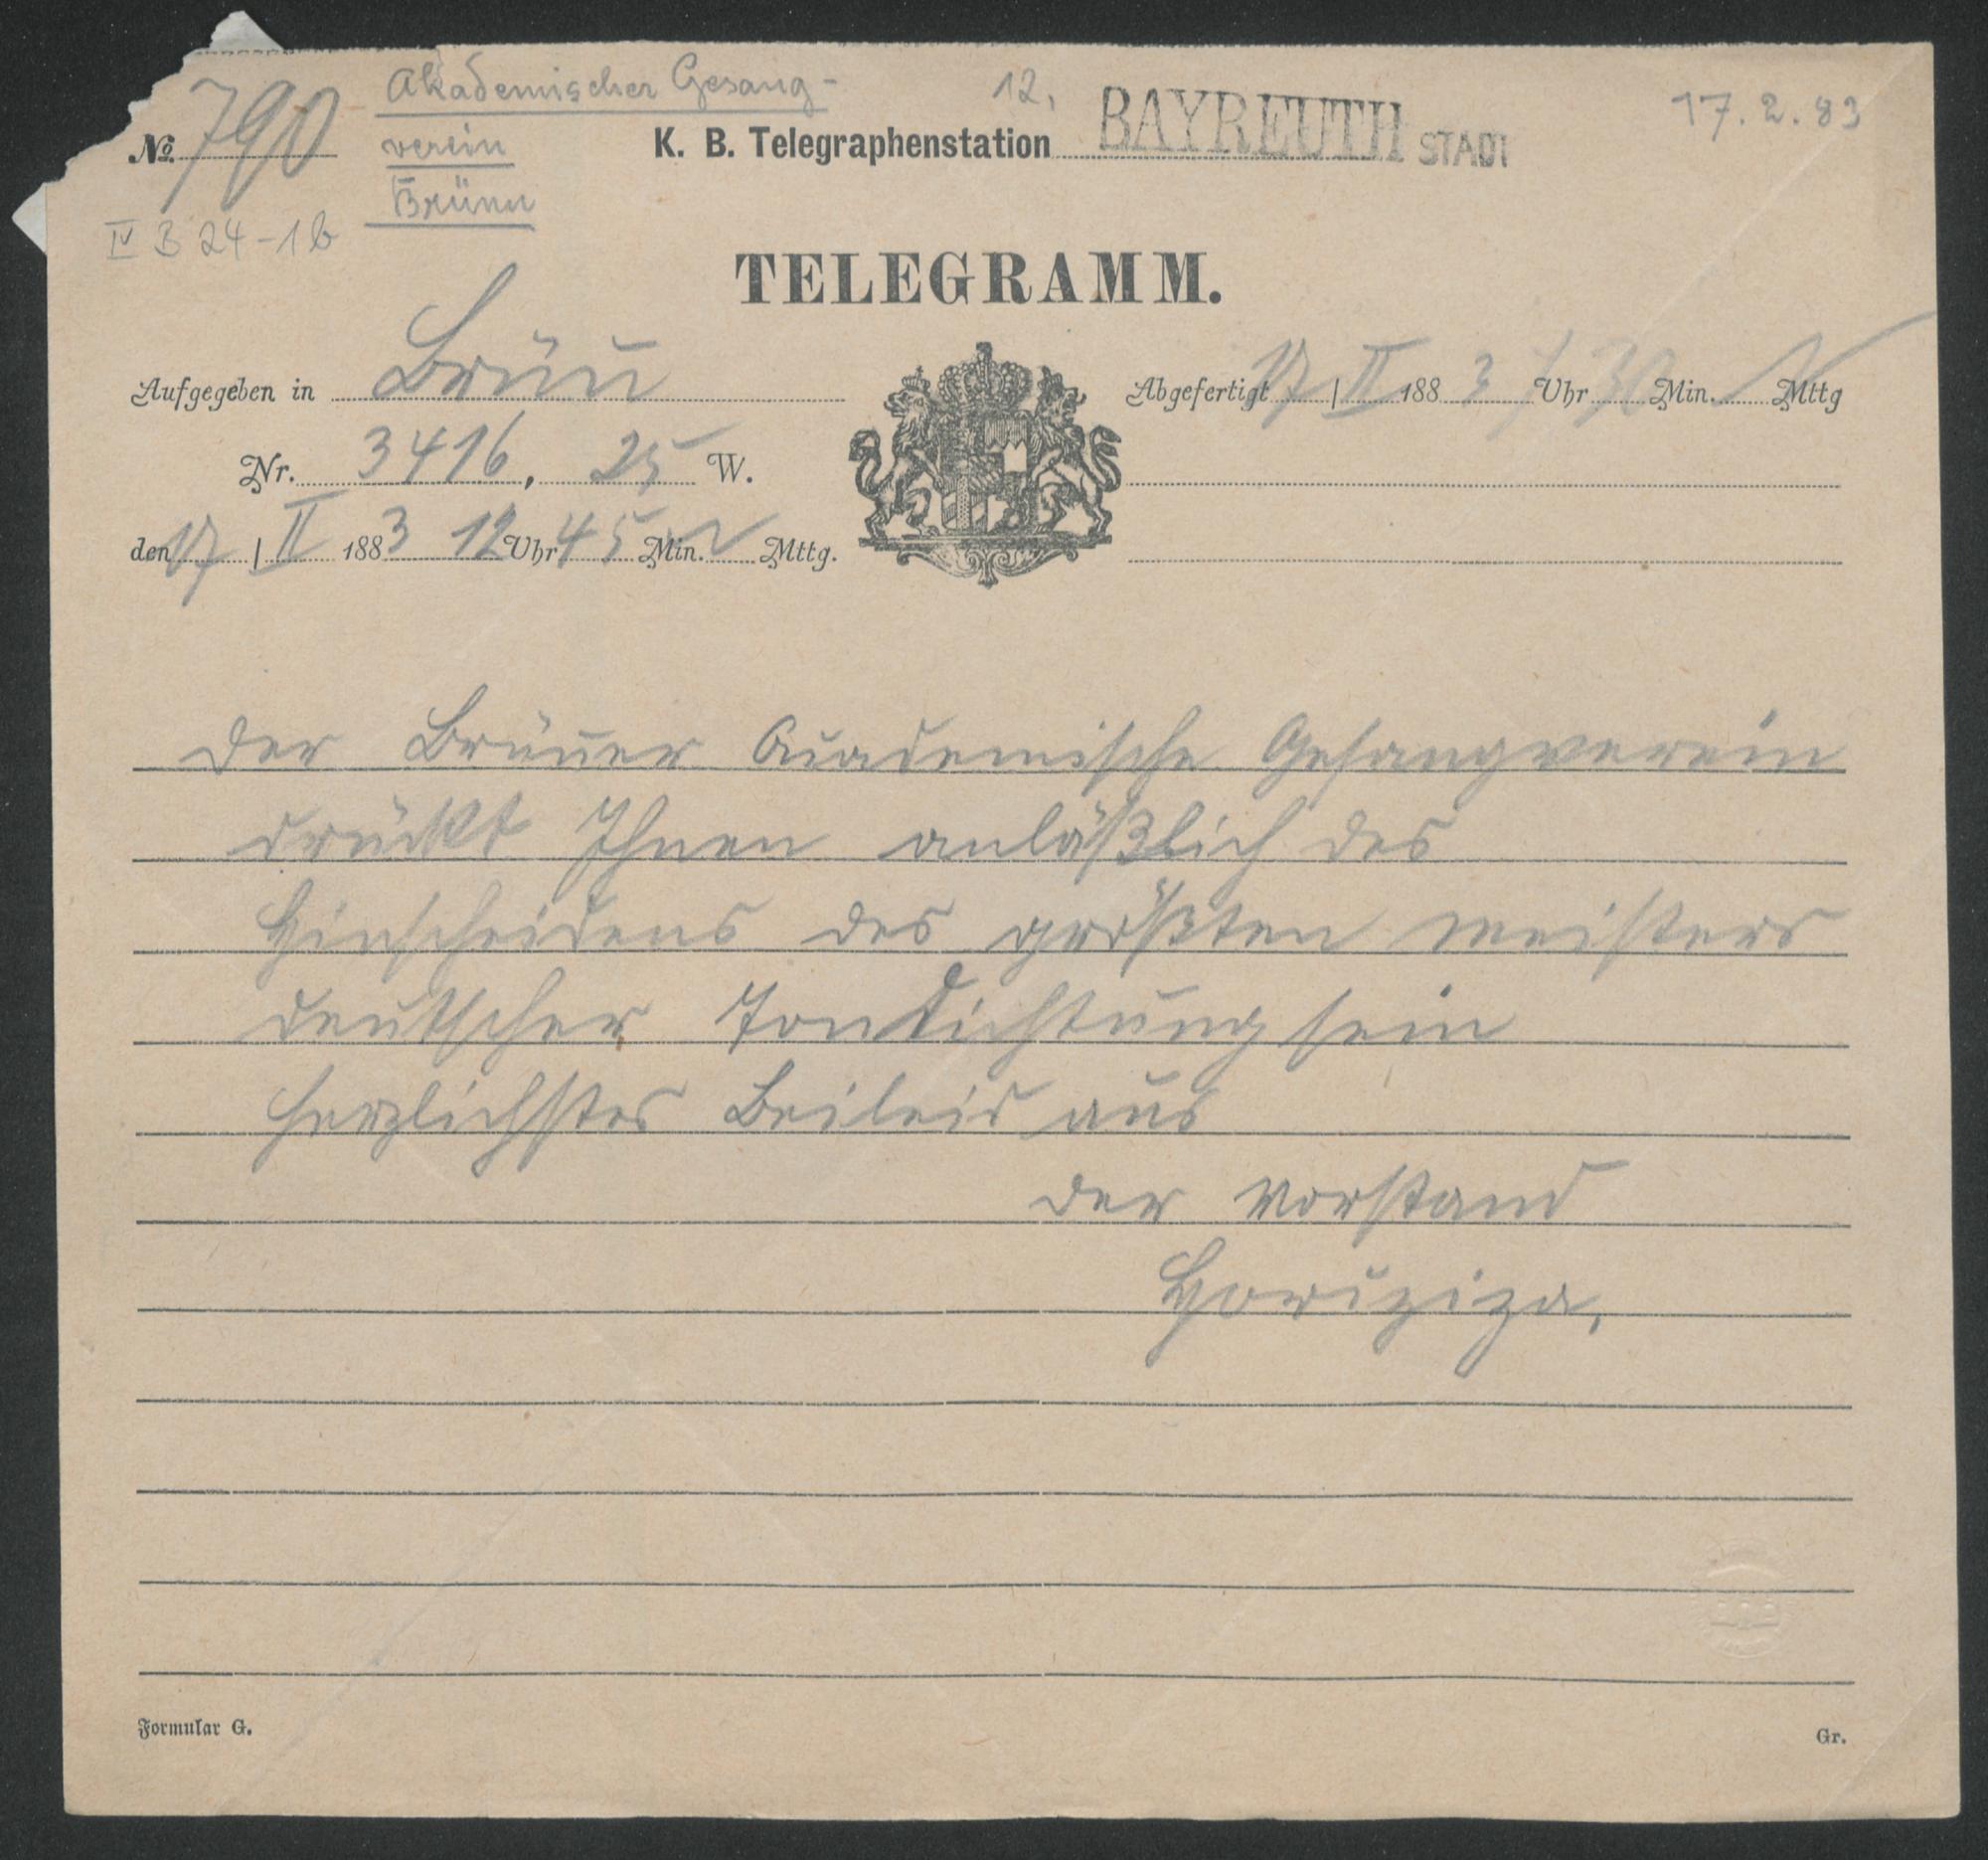 Akademischer Gesang-
verein
Brünn
12,
17. 2. 83
№ 790
K. B. Telegraphenstation BAYREUTH STADT
IV B 24-1b
TELEGRAMM.
Aufgegeben in Brün̄
Abgefertigt 17 | II 1883 Uhr 30 Min. N Mttg
Nr. 3416, 25 W.
den 17 | II 1883 12 Uhr 45 Min. N Mttg.
der Brün̄er Academische Gesangverein
drückt Ihnen anläßlich des
Hinscheidens des größten meisters
deutscher Tondichtung sein
herzlichstes Beileid aus
der Vorstand
Formular G.
Gr.